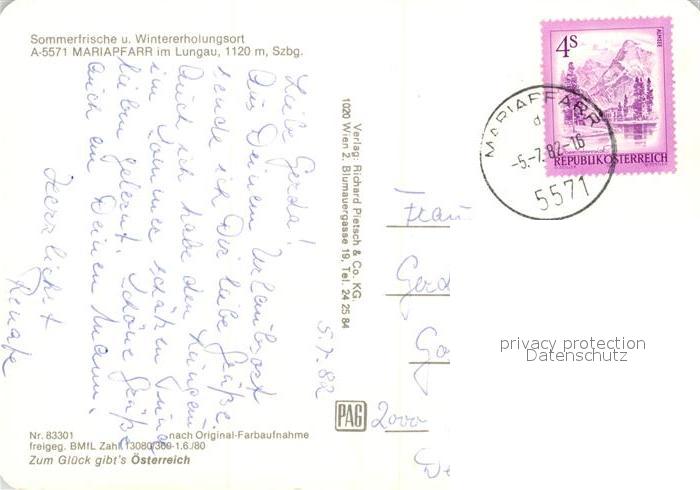 Sommerfrische u. Wintererholungsort
A-5571 MARIAPFARR im Lungau, 1120 m, Szbg.
Liebe Gerda!
Aus Deinem Urlaubsort
sende ich Dir liebe Grüße.
Auch ich habe den Lungau
im Sommer schätzen u
lieben gelernt. Schöne Grüße
auch an Deinen Mann.
Herzlichst
Renate
5.7.82
Verlag: Richard Pietsch & Co. KG.
1020 Wien 2, Blumauergasse 19, Tel. 24 25 84
PAG
Nr. 83301 nach Original-Farbaufnahme
freigeg. BMfL Zahl 13080/369-1.6./80
Zum Glück gibt's Österreich
4S
ALMSEE
REPUBLIK ÖSTERREICH
MARIAPFARR
d
-5.-7.82-16
5571
Frau
Gerd
2000
privacy protection
Datenschutz